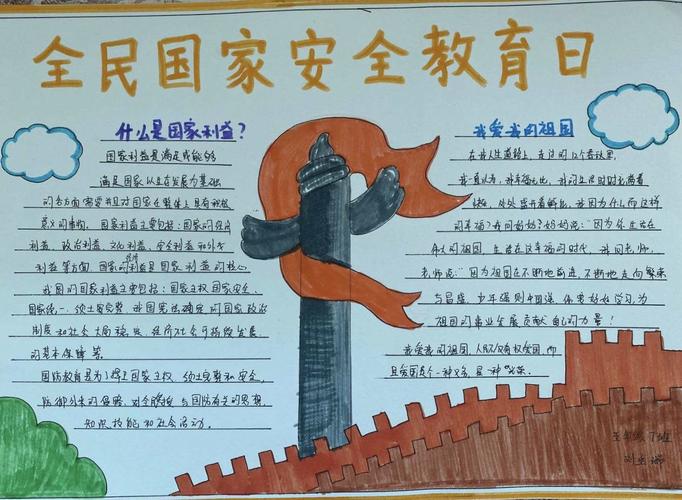 全民国家安全教育日
什么是国家利益？
国家利益是满足或能够
满足国家以生存发展为基础
的各方面需要并且对国家在整体上具有积极
意义的事物。国家利益主要包括：国家的
利益，政治利益，文化利益，安全利益和外
利益等方面，国家的利益是国家利益的核心
我国的国家利益主要包括：国家主权国家安全，
国家统一，领土完整，我国宪法确定的国家政治
制度和社会大局稳定，经济社会可持续发展
的基本保障等。
国防教育是为了捍卫国家主权，领土完整和安全，
防御外来的侵略，对全民 与国防有关的思想，
知识技能和社会活动。
我爱我的祖国
在我人生道路上，走过的12个春秋里，
我一直认为，我幸福无比，我的生活时时充满着
处处盛开着鲜花，我因为什么而这样
的幸福？我问妈妈？妈妈说：“因为你生活在
伟大的祖国，生活在这幸福的时代，我问老师，
老师说：“因为祖国在不断地前进，不断地走向繁荣
与昌盛，少年强则中国强，你要好好学习，为
祖国的事业发展贡献自己的力量！
我爱我的祖国，人民 爱国，而
且爱国是一种义务，是一种光荣。
五年级7班
刘